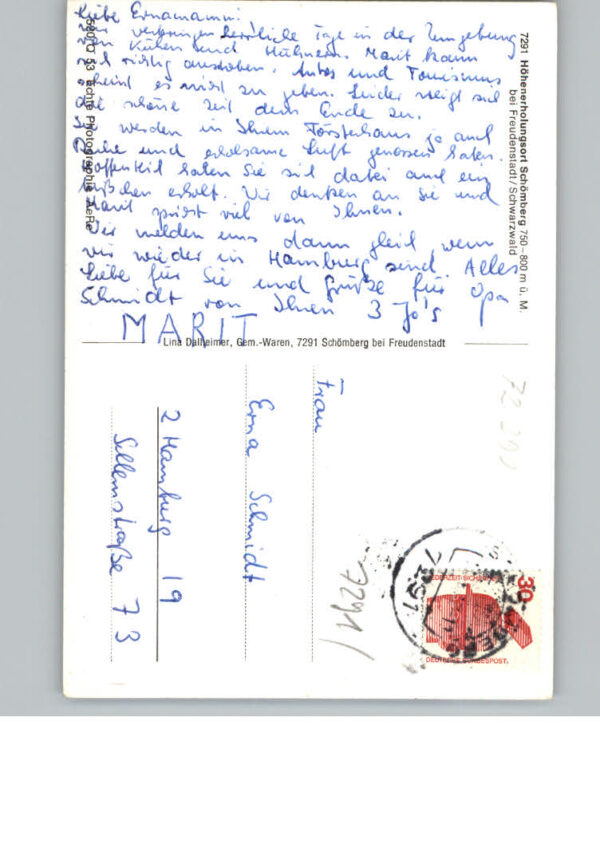 Liebe Ernamami!
Wir verbringen herrliche Tage in der Umgebung
von Kühen und Hühnern. Marit kann
sich richtig austoben. Autos und Tourismus
scheint es nicht zu geben. Leider neigt sich
die schöne Zeit dem Ende zu.
Sie werden in Ihrem Försterhaus ja auch
Ruhe und erholsame Luft genossen haben.
Hoffentlich haben Sie sich dabei auch ein
bißchen erholt. Wir denken an Sie und
Marit spricht viel von Ihnen.
Wir melden uns dann gleich, wenn
wir wieder in Hamburg sind. Alles
Liebe für Sie und Grüße für Opa
Schmidt von Ihnen 3 Jo's
MARIT
7291 Höhenerholungsort Schömberg 750-800 m ü. M.
bei Freudenstadt/Schwarzwald
53 Echte Photographie AeRe
Lina Dalheimer, Gem.-Waren, 7291 Schömberg bei Freudenstadt
Frau
Erna Schmidt
2 Hamburg 19
Sillemstraße 73
7291
72 291
7297
30
JEDERZEIT SICHERHEIT
DEUTSCHE BUNDESPOST